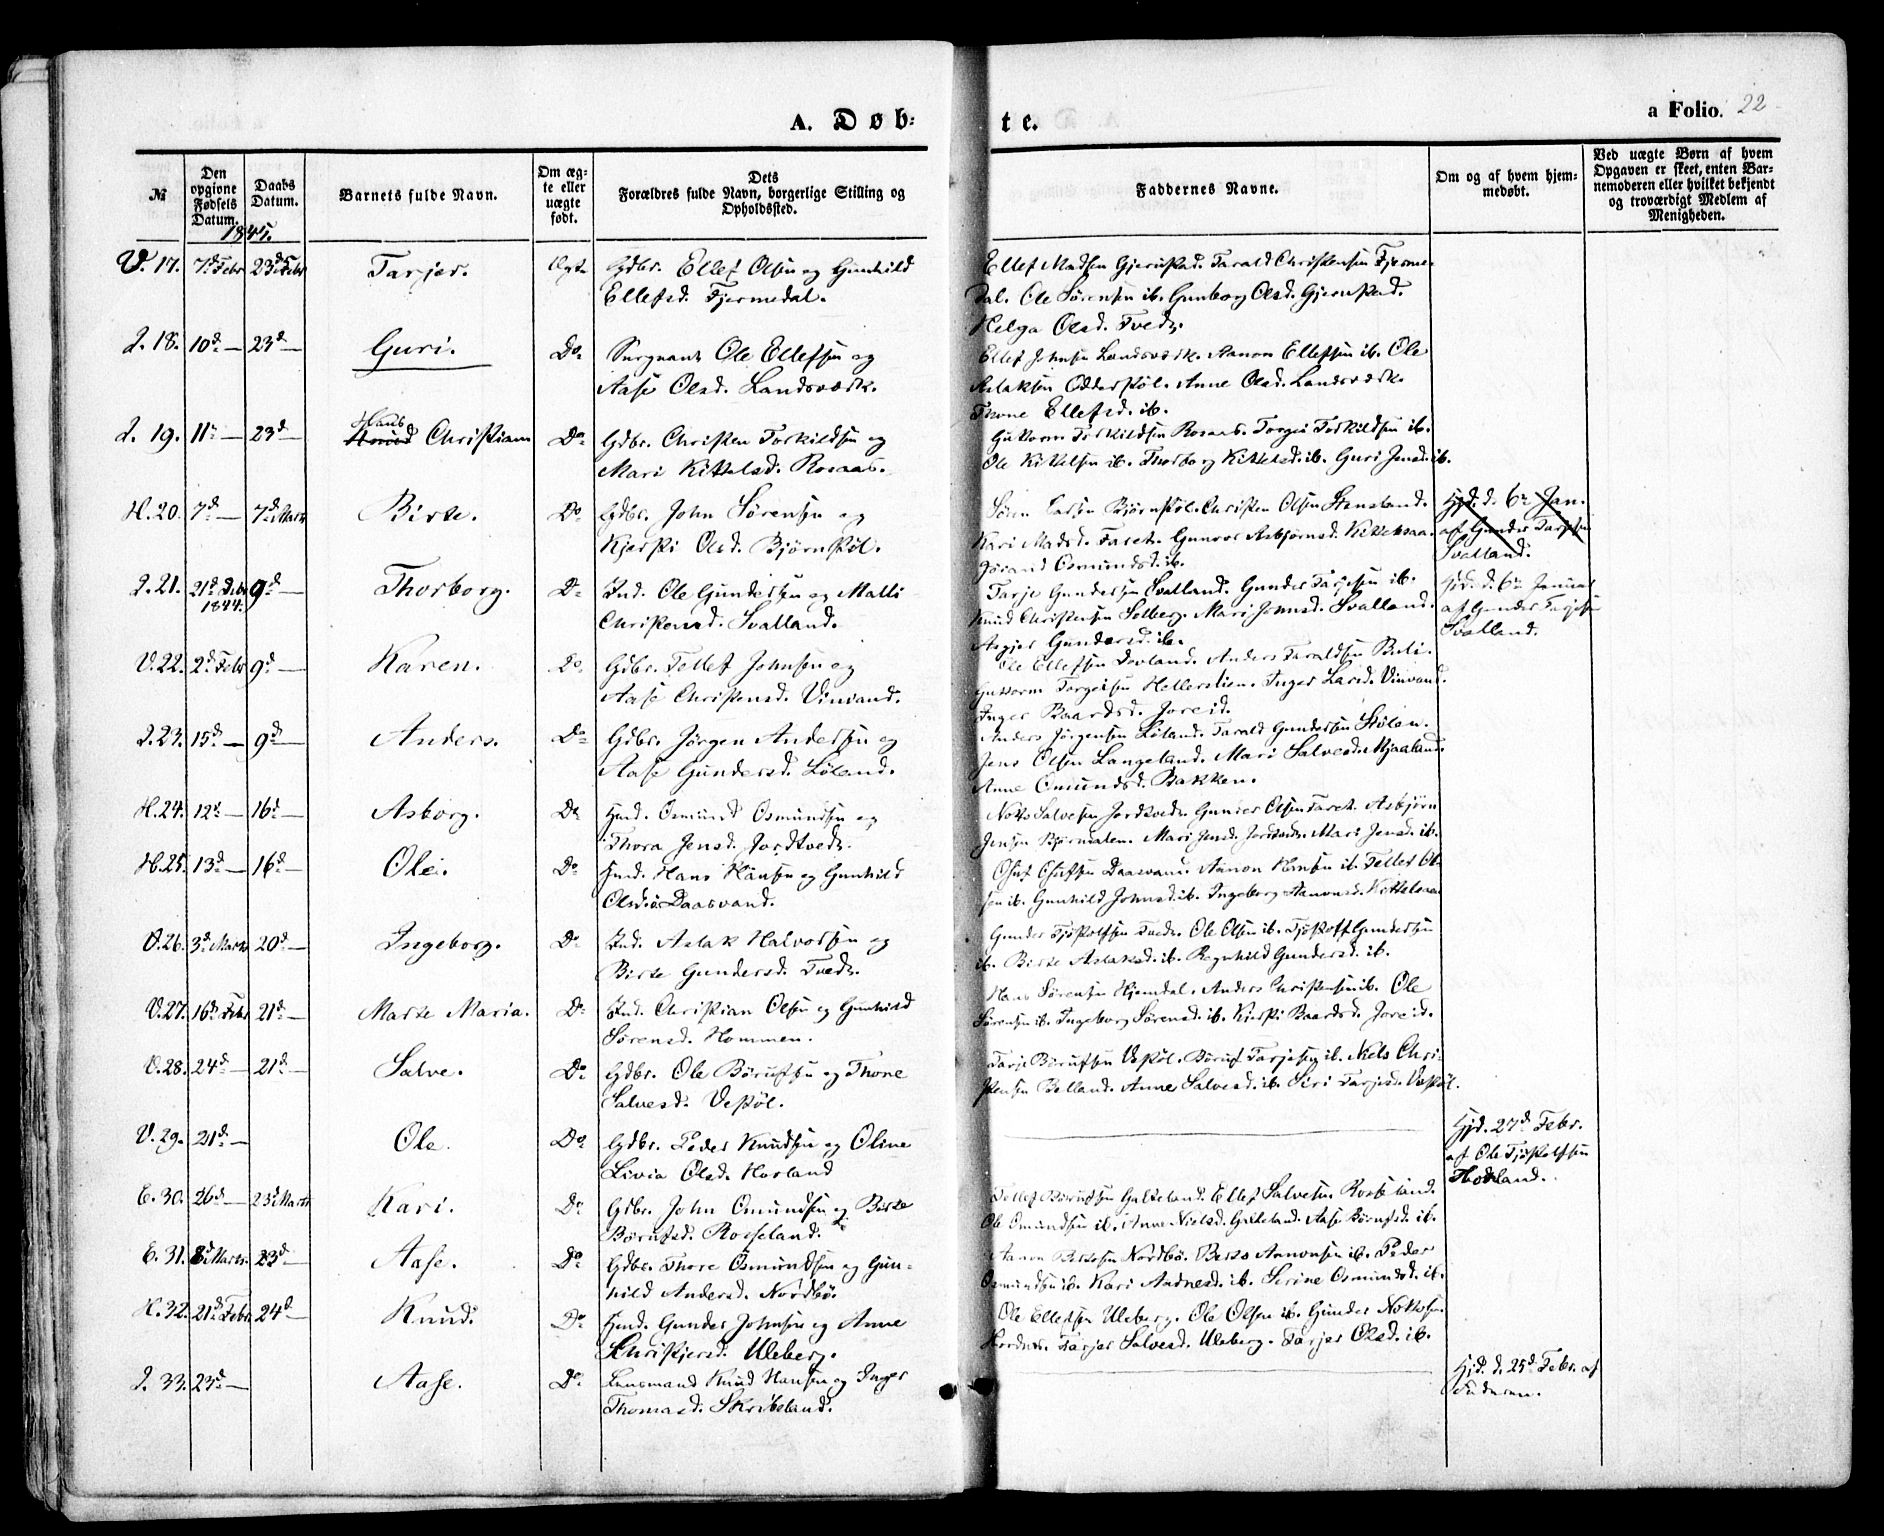 A. Døb-
te.
a Folio. 22
№
Den opgivne Fødsels Datum.
Daabs Datum.
Barnets fulde Navn.
Om ægte eller uægte født.
Dets Forældres fulde Navn, borgerlige Stilling og Opholdssted.
Faddernes Navne.
Om og af hvem hjemmedøbt.
Ved uægte Børn af hvem Opgaven er skeet, enten Barnemoderen eller hvilket bekjendt og troværdigt Medlem af Menigheden.
1845.
V. 17. 7d Febr 23d Febr Tarjer. Ægte Gdbr. Ellef Olsen og Gunhild
Ellefsd. Fjermedal.
Ellef Madsen Gjerustad. Tarald Christensen Fjerme-
dal. Ole Sørensen ib. Gunborg Olsd. Gjerustad.
Helga Olsd. Tvedt.
I. 18. 10d — 23d — Guri. Do Sergeant Ole Ellefsen og
Aase Olsd. Landsværk.
Ellef Johnsen Landsværk. Aanon Ellefsen ib. Ole
Aslaksen Odderstøl. Anne Olsd. Landsværk.
Thone Ellefsd. ib.
I. 19. 11te — 23d — Hans Christian Do Gdbr. Christen Torkildsen og
Mari Kittelsd. Rosaas.
Guttorm Torkildsen Rosaas. Torgei Torkildsen ib.
Ole Kittelsen ib. Thorborg Kittelsd. ib. Guri Jensd. ib.
H. 20. 7d — 7d Marts Birte. Do Gdbr. John Sørensen og
Kjersti Olsd. Bjørnstøl.
Søren Larsen Bjørnstøl. Christen Olsen Stensland.
Kari Madsd. Faret. Gunvor Asbjørnsd. Kittelsaa.
Jørand Osmundsd. ib.
Hjd. d. 6te Jan.
af Gunder Tarjesen
Svalland.
I. 21. 21d Debr 1844. 9d — Thorborg. Do Ind. Ole Gundersen og Malli
Christensd. Svalland.
Tarje Gundersen Svalland. Gunder Tarjesen ib.
Knud Christensen Solberg. Mari Johnsd. Svalland.
Asgjer Gundersd. ib.
Hjd. d. 6te Januar
af Gunder Tarjesen
Svalland.
V. 22. 2d Febr 9d — Karen. Do Gdbr. Tellef Johnsen og
Aase Christensd. Vinvand.
Ole Ellefsen Dovland. Anders Taraldsen Buli.
Guttorm Torgeisen Hellerslien. Inger Larsd. Vinvand.
Inger Baardsd. Joreid.
I. 23. 15d — 9d — Anders. Do Gdbr. Jørgen Andersen og
Aase Gundersd. Løland.
Anders Jørgensen Løland. Tarald Gundersen Stølen.
Jens Olsen Langeland. Mari Salvesd. Mjaaland.
Anne Osmundsd. Bakken.
H. 24. 12t — 16d — Asborg. Do Hmd. Osmund Osmundsen og
Thora Jensd. Jordtvedt.
Notto Salvesen Jordtvedt. Gunder Olsen Faret. Asbjørn
Jensen Bjørmalen. Mari Jensd. Jordtvedt. Mari Jensd. ib.
H. 25. 13d — 16d — Ole. Do Hmd. Hans Hansen og Gunhild
Olsd. Daasvand.
Oluf Olufsen Daasvand. Aanon Hansen ib. Tellef Ol-
sen ib. Gunhild Johnsd. ib. Ingeborg Aanonsd. Kittelsaa.
V. 26. 3d Marts 20d — Ingeborg. Do Ind. Aslak Halvorsen og
Birte Gundersd. Tvedt.
Gunder Tjøstolfsen Tvedt. Ole Olsen ib. Tjøstolf Gundersen
ib. Birte Aslaksd. ib. Regnhild Gundersd. ib.
V. 27. 16d Febr 21d — Marte Maria. Do Ind. Christian Olsen og Gunhild
Sørensd. Hommen.
Hans Sørensen Hjemdal. Anders Christensen ib. Ole
Sørensen ib. Ingeborg Sørensd. ib. Kirsti Baardsd. Joreid.
V. 28. 24d — 21d — Salve. Do Gdbr. Ole Børufsen og Thone
Salvesd. Vestøl.
Tarje Børufsen Vestøl. Børuf Tarjesen ib. Niels Chri-
stensen Belland. Anne Salvesd. ib. Siri Tarjesd. Vestøl.
V. 29. 21d — Ole. Do Gdbr. Peder Knudsen og Oline
Livia Olsd. Hovland
Hjd. 27d Febr.
af Ole Tjøstolfsen
Hodland.
E. 30. 26d — 23d Marts Kari. Do Gdbr. John Osmundsen og Birte
Børufsd. Rosseland.
Tellef Børufsen Galteland. Ellef Salvesen Rosseland.
Ole Osmundsen ib. Anne Nielsd. Galteland. Aase Børufsd. ib.
E. 31. 8d Marts. 23d — Aase. Do Gdbr. Thore Osmundsen og Gun-
hild Andersd. Nordbø.
Aanon Bertosen Nordbø. Berto Aanonsen ib. Peder
Osmundsen ib. Kari Andresd. ib. Serine Osmundsd. ib.
H. 32. 21d Febr. 24d — Knud. Do Hmd. Gunder Johnsen og Anne
Christjersd. Uleberg.
Ole Ellefsen Uleberg. Ole Olsen ib. Gunder Nottosen
Hordnes. Tarjer Salvesd. Uleberg. Tarjer Olsd. ib.
I. 33. 23d — Aase. Do Lensmand Knud Hansen og Inger
Thomasd. Skribeland.
Hjd. d. 25d Febr. af